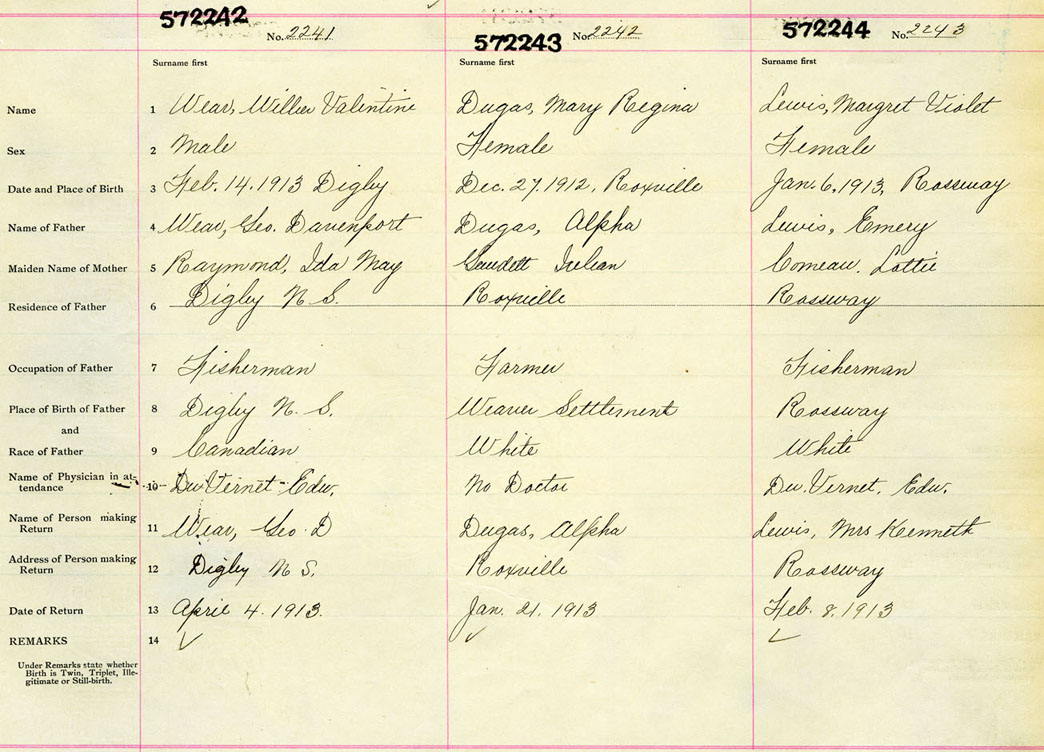 572242 No. 2241 572243 No. 2242 572244 No. 2243
Surname first Surname first Surname first
Name 1 Wear, Willie Valentine Dugas, Mary Regina Lewis, Margret Violet
Sex 2 Male Female Female
Date and Place of Birth 3 Feb. 14. 1913 Digby Dec. 27. 1912, Roxville Jan. 6. 1913, Rossway
Name of Father 4 Wear, Geo. Davenport Dugas, Alpha Lewis, Emery
Maiden Name of Mother 5 Raymond, Ida May Gaudett Julian Comeau. Lottie
Residence of Father 6 Digby N S. Roxville Rossway
Occupation of Father 7 Fisherman Farmer Fisherman
Place of Birth of Father 8 Digby N. S. Weaver Settlement Rossway
and
Race of Father 9 Canadian White White
Name of Physician in at-
tendance 10 Du Vernet - Edw. No Doctor Du Vernet. Edw.
Name of Person making
Return 11 Wear, Geo. D Dugas, Alpha Lewis, Mrs Kenneth
Address of Person making
Return 12 Digby N S. Roxville Rossway
Date of Return 13 April 4. 1913. Jan. 21. 1913 Feb. 8. 1913
REMARKS 14
Under Remarks state whether
Birth is Twin, Triplet, Ille-
gitimate or Still-birth.